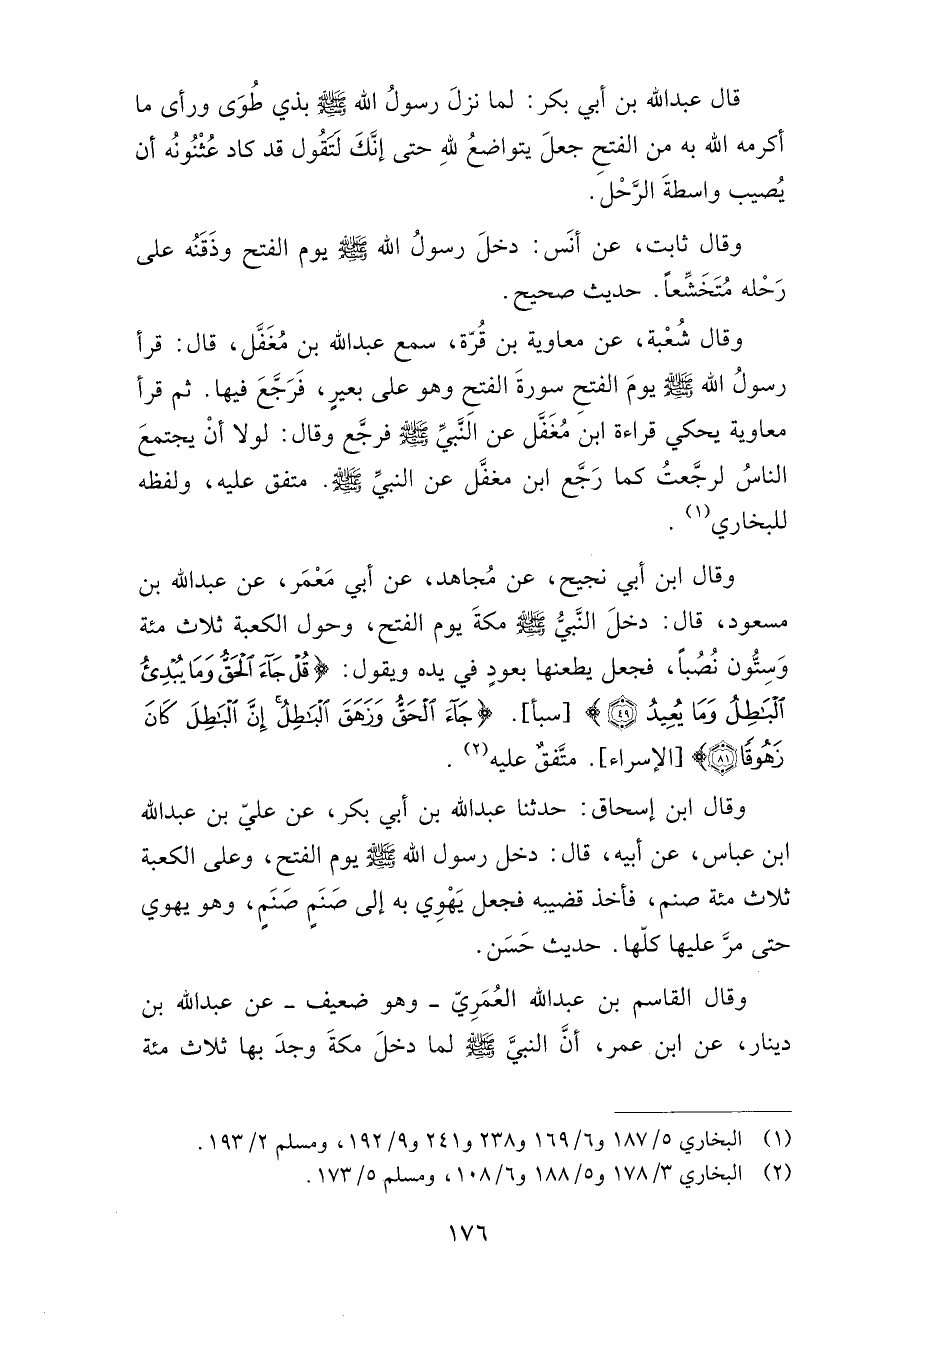 قال عبدالله بن أبي بكر: لما نزلَ رسولُ الله ﷺ بذي طُوَى ورأى ما
أكرمه الله به من الفتحِ جعلَ يتواضعُ للهِ حتى إنَّكَ لَتَقُول قد كاد عُثْنُونُه أن
يُصيب واسطةَ الرَّحْل.
وقال ثابت، عن أنَس: دخلَ رسولُ الله ﷺ يوم الفتح وذَقَنُه على
رَحْله مُتَخَشِّعاً. حديث صحيح.
وقال شُعْبة، عن معاوية بن قُرّة، سمع عبدالله بن مُغَفَّل، قال: قرأ
رسولُ الله ﷺ يومَ الفتحِ سورةَ الفتحِ وهو على بعيرٍ، فَرَجَّعَ فيها. ثم قرأ
معاوية يحكي قراءة ابن مُغَفَّل عن النَّبيِّ ﷺ فرجَّع وقال: لولا أنْ يجتمعَ
الناسُ لرجَّعتُ كما رَجَّع ابن مغفَّل عن النبيِّ ﷺ. متفق عليه، ولفظه
للبخاري(١).
وقال ابن أبي نجيح، عن مُجاهد، عن أبي مَعْمَر، عن عبدالله بن
مسعود، قال: دخلَ النَّبيُّ ﷺ مكةَ يوم الفتح، وحول الكعبة ثلاث مئة
وَستُّون نُصُباً، فجعل يطعنها بعودٍ في يده ويقول: ﴿قُلْ جَآءَ ٱلْحَقُّ وَمَا يُبْدِئُ
ٱلْبَٰطِلُ وَمَا يُعِيدُ ۝٤٩﴾ [سبأ]. ﴿جَآءَ ٱلْحَقُّ وَزَهَقَ ٱلْبَٰطِلُۚ إِنَّ ٱلْبَٰطِلَ كَانَ
زَهُوقًا ۝٨١﴾ [الإسراء]. متَّفقٌ عليه(٢).
وقال ابن إسحاق: حدثنا عبدالله بن أبي بكر، عن عليّ بن عبدالله
ابن عباس، عن أبيه، قال: دخل رسول الله ﷺ يوم الفتح، وعلى الكعبة
ثلاث مئة صنم، فأخذ قضيبه فجعل يَهْوِي به إلى صَنَمٍ صَنَمٍ، وهو يهوي
حتى مرَّ عليها كلّها. حديث حَسَن.
وقال القاسم بن عبدالله العُمَرِيّ - وهو ضعيف - عن عبدالله بن
دينار، عن ابن عمر، أنَّ النبيَّ ﷺ لما دخلَ مكةَ وجدَ بها ثلاث مئة
(١) البخاري ٥/ ١٨٧ و٦/ ١٦٩ و٢٣٨ و٢٤١ و٩/ ١٩٢، ومسلم ٢/ ١٩٣.
(٢) البخاري ٣/ ١٧٨ و٥/ ١٨٨ و٦/ ١٠٨، ومسلم ٥/ ١٧٣.
١٧٦